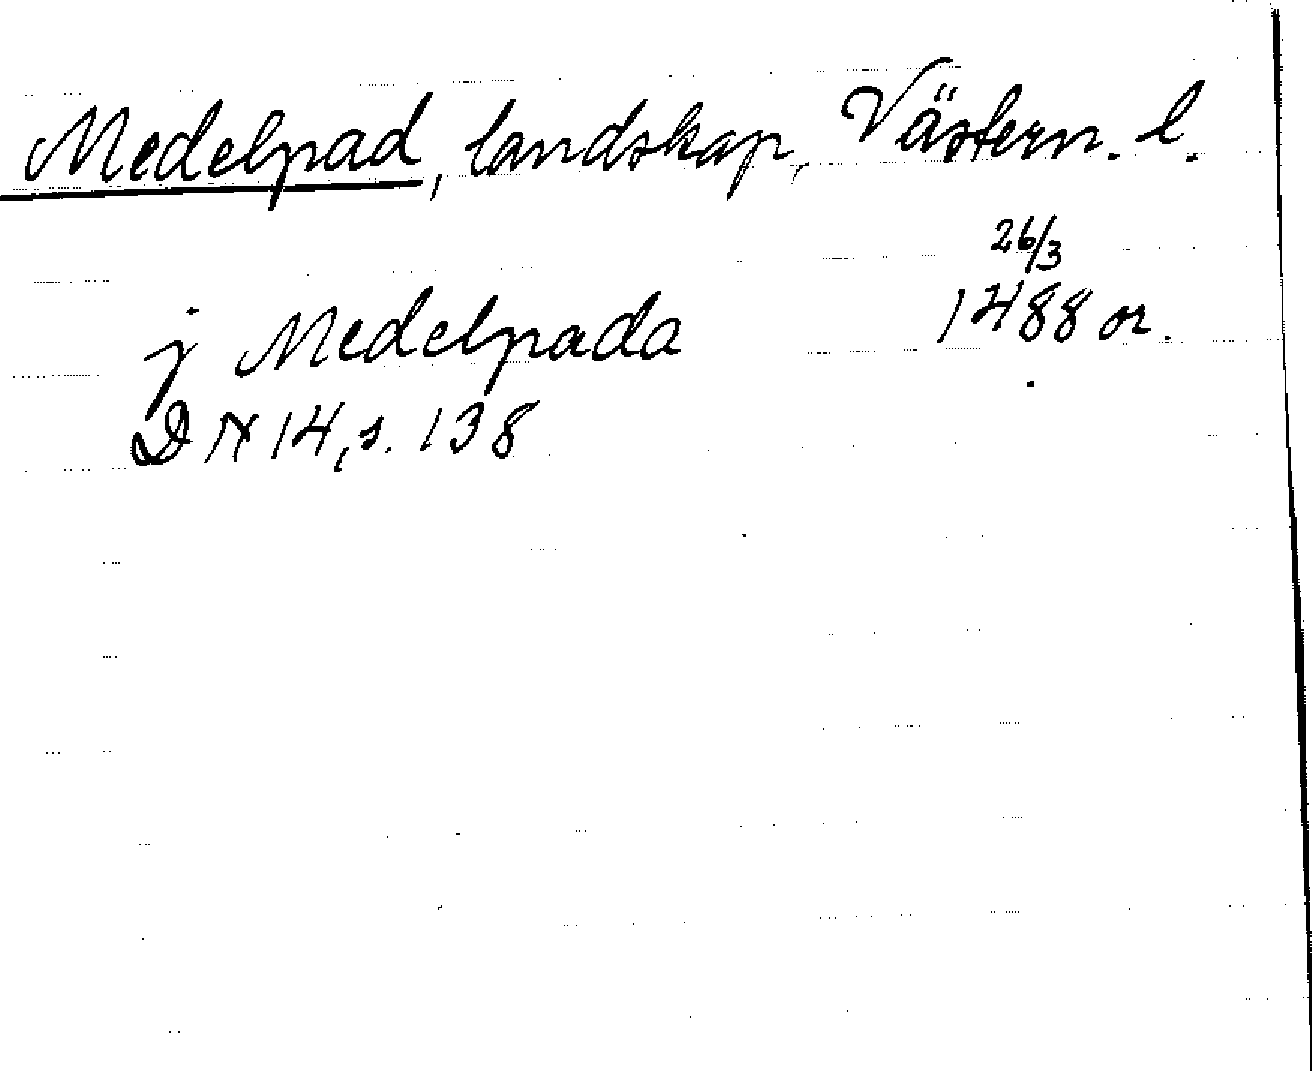 Medelpad, landskap, Västern. l.
26/3
j Medelpada 1488 or.
DN 14, s. 138